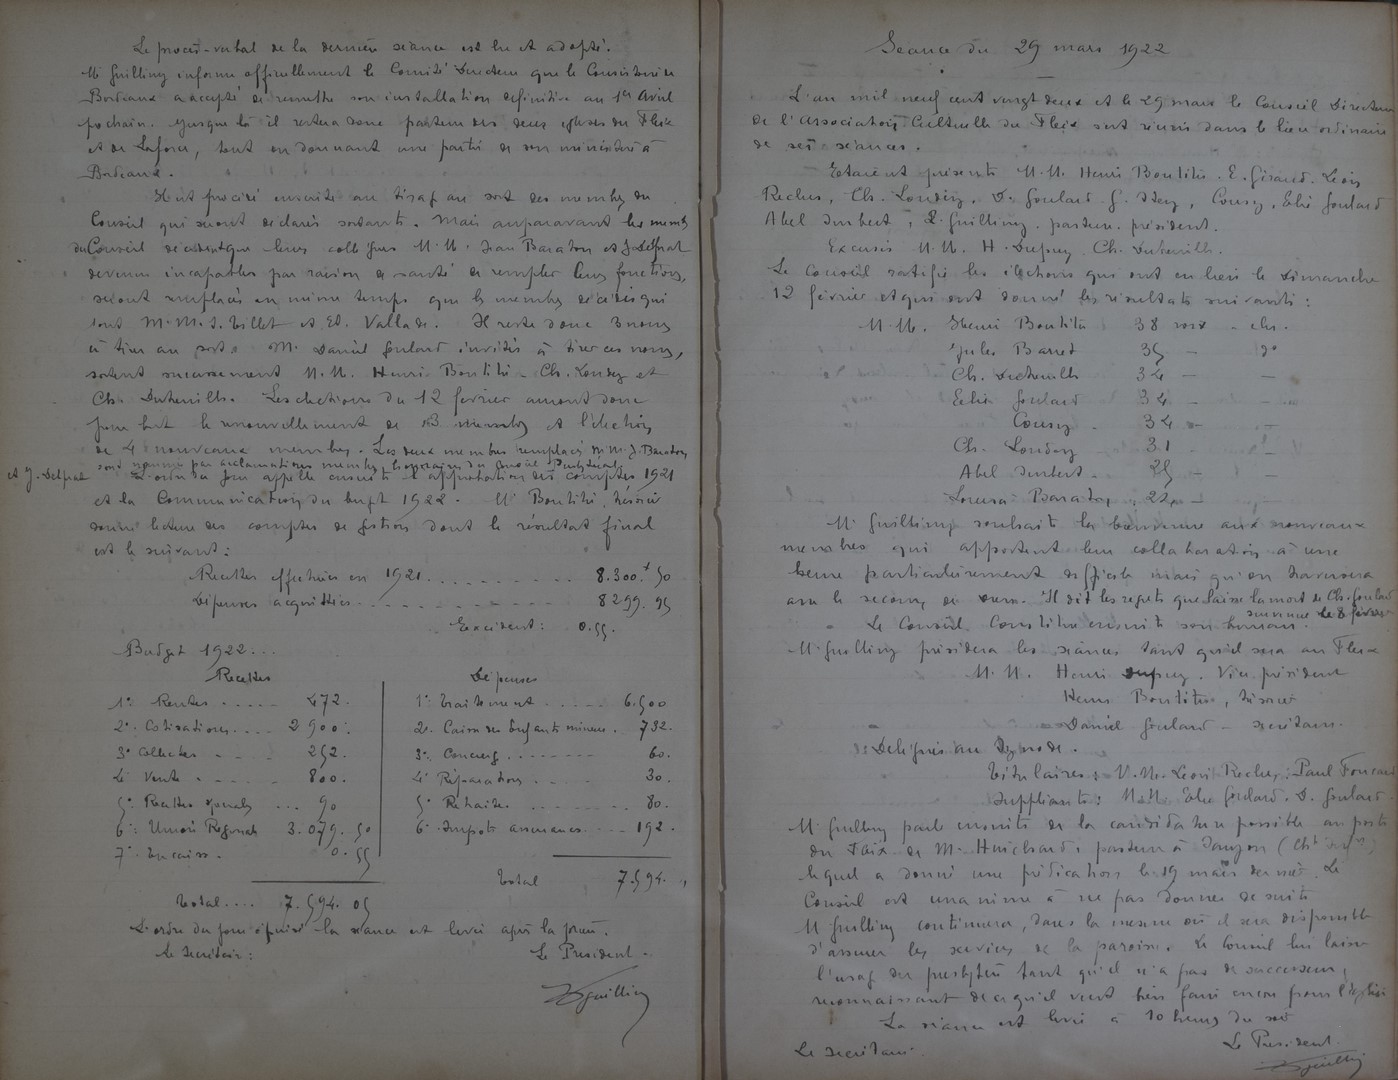 Le procès-verbal de la dernière séance est lu et adopté.
Mr Guilling informe officiellement le Comité Directeur que le Consistoire de
Bordeaux a accepté de remettre son installation définitive au 1er Avril
prochain. Jusque là il restera donc pasteur des deux églises du Fleix
et de Laforce, tout en donnant une partie de son ministère à
Bordeaux.
Il est procédé ensuite au tirage au sort des membres du
Conseil qui seront déclarés sortants. Mais auparavant les membres
du Conseil que leurs collègues M.M. Jean Baraton et J. Delprat
devenus incapables par raison de santé de remplir leurs fonctions,
seront remplacés en même temps que les membres décédés qui
sont M.M. J. Tillet et Ed. Vallade. Il reste donc 3 noms
à tirer au sort. Mr Daniel Goulard invité à tirer ces noms,
sortent successivement M.M. Henri Boutitie - Ch. Londey et
Ch. Duteuilh. Les élections du 12 février auront donc
pour but le renouvellement de 3 membres et l'élection
de 4 nouveaux membres. Les deux membres remplacés M.M. J. Baraton
et J. Delprat sont nommés par acclamations membres honoraires du Conseil
L'ordre du jour appelle ensuite l'approbation des comptes 1921
et la Communication du budget 1922. Mr Boutitie, trésorier
donne lecture des comptes de gestion dont le résultat final
est le suivant :
Recettes effectuées en 1921 . . . . . . . . 8.300.50
Dépenses acquittées . . . . . . . . 8299.95
Excédent : 0.55.
Budget 1922...
Recettes
1° Rentes . . . . . 472.
2° Cotisations . . . . 2900.
3° Collectes . . . . 252.
4° Vente . . . . . 800.
5° Recettes spéciales . . . 90
6° Union Régionale 3.079.50
7° En caisse . 0.55
Total .... 7.594.05
Dépenses
1° Traitement . . . . . 6.500
2° Caisse des Enfants mineurs . 732.
3° Concierge . . . . . . . 60.
4° Réparations . . . . 30.
5° Retraites . . . . . . . 80.
6° Impots assurances . . . . 192.
Total 7.594.
L'ordre du jour épuisé la séance est levée après la prière.
Le Secrétaire : Le Président
Guilling
Séance du 29 mars 1922
L'an mil neuf cent vingt deux et le 29 mars le Conseil Directeur
de l'Association Cultuelle du Fleix s'est réuni dans le lieu ordinaire
de ses séances.
Etaient présents M.M. Henri Boutitie. E. Giraud. Léon
Reches, Ch. Londey, D. Goulard, Cousy, Elie Goulard
Abel Imbert, Guilling, pasteur, président.
Excusés M.M. H. Dupuy, Ch. Duteuilh.
Le Conseil ratifie les élections qui ont eu lieu le Dimanche
12 février et qui ont donné les résultats suivants :
M.M. Henri Boutitie 38 voix - élu.
Jules Barret 35 - d°
Ch. Duteuilh 34 - -
Elie Goulard 34 - -
Cousy . 34 - -
Ch. Londey 31 - -
Abel Imbert - 25 - -
Baraton , 22, -
Mr Guilling souhaite la bienvenue aux nouveaux
membres qui apportent leur collaboration à une
particulièrement difficile mais qu'on traversera
avec le secours de Dieu. Il dit les regrets que laisse la mort de Ch. Goulard
survenue le 8 février
Le Conseil Constitue ensuite son bureau.
Mr Guilling présidera les séances tant qu'il sera au Fleix
M.M. Henri Dupuy, Vice président
Henri Boutitie, trésorier
Daniel Goulard - secrétaire.
Délégués au Synode.
Titulaires : M.M. Léon Reches, Paul Foucaud
Suppléants : M.M. Elie Goulard, D. Goulard
Mr Guilling parle ensuite de la candidature possible au poste
du Fleix de Mr Huichard, pasteur à Saujon
lequel a donné une prédication le 19 mars dernier. Le
Conseil est unanime à ne pas donner de suite
Mr Guilling continuera, dans la mesure où il sera disponible
d'assurer les services de la paroisse. Le Conseil lui laisse
l'usage du presbytère tant qu'il n'a pas de successeur,
reconnaissant de ce qu'il veut bien faire encore pour l'église
La séance est levée à 10 heures du soir
Le Secrétaire. Le Président.
Guilling